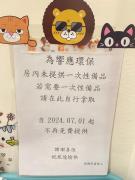 為響應環保
房內未提供一次性備品
若需要一次性備品
請在此自行拿取
自 2024.07.01 起
不再免費提供
謝謝房客